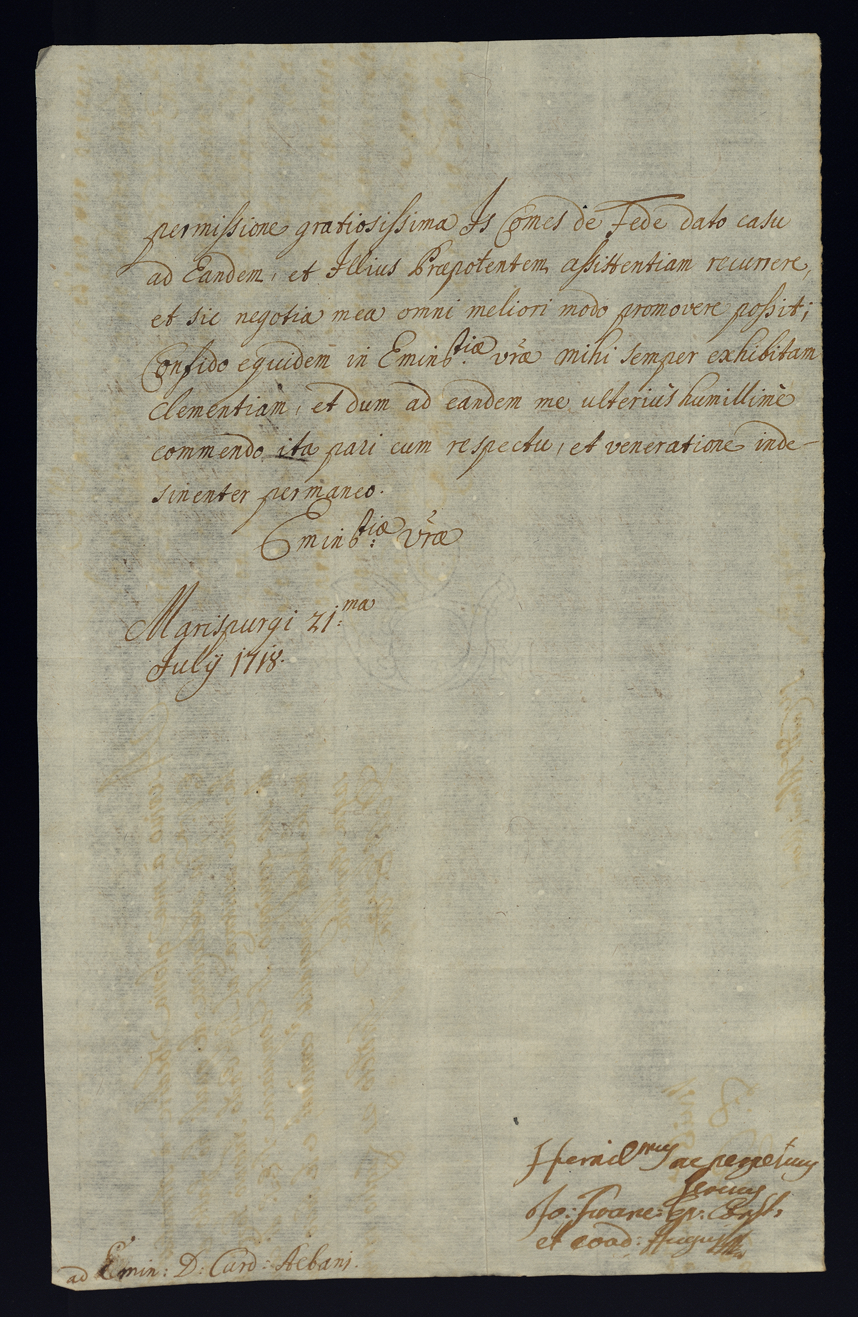 permissione gratiosissima Is Comes de Fede dato casu
ad Eandem, et Illius Præpotentem assistentiam recurrere,
et sic negotia mea omni meliori modo promovere possit;
Confido equidem in Emin̄tiæ vr̃æ mihi semper exhibitam
Clementiam, et dum ad eandem me ulterius humillimè
commendo ita pari cum respectu, et veneratione inde-
sinenter permaneo.
Emin̄tiæ vr̃æ
Marispurgi 21.ma
July 1718.
ac perpetuus
servus
Jo: Franc: Ep: Const:
et coad: August:
ad Emin: D: Card: Albani.